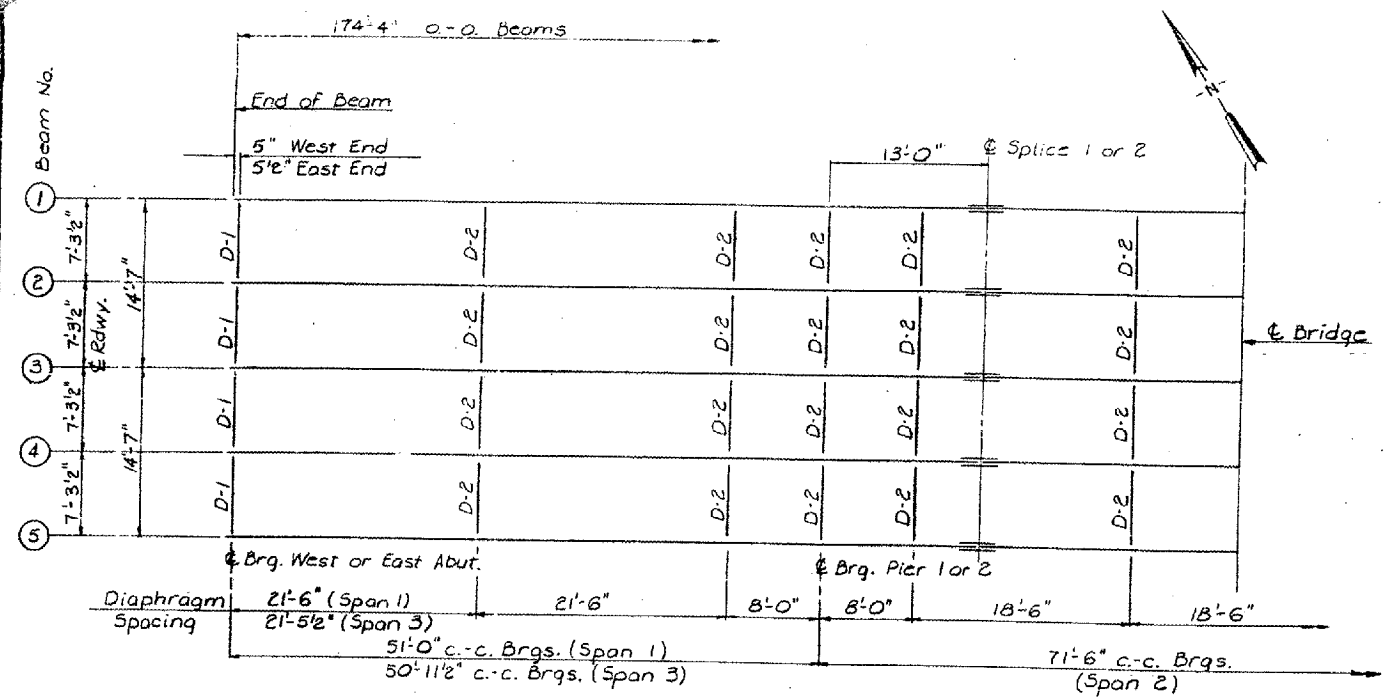 174'-4" o.-o. Beams
Beam No.
End of Beam
5" West End
5½" East End
13'-0"
℄ Splice 1 or 2
N
1
2
3
4
5
7'-3½"
7'-3½"
7'-3½"
7'-3½"
℄ Rdwy.
14'-7"
14'-7"
D-1 D-2 D-2 D-2 D-2 D-2
D-1 D-2 D-2 D-2 D-2 D-2
D-1 D-2 D-2 D-2 D-2 D-2
D-1 D-2 D-2 D-2 D-2 D-2
℄ Bridge
℄ Brg. West or East Abut.
℄ Brg. Pier 1 or 2
Diaphragm Spacing
21'-6" (Span 1)
21'-5½" (Span 3)
21'-6"
8'-0"
8'-0"
18'-6"
18'-6"
51'-0" c.-c. Brgs. (Span 1)
50'-11½" c.-c. Brgs. (Span 3)
71'-6" c.-c. Brgs.
(Span 2)